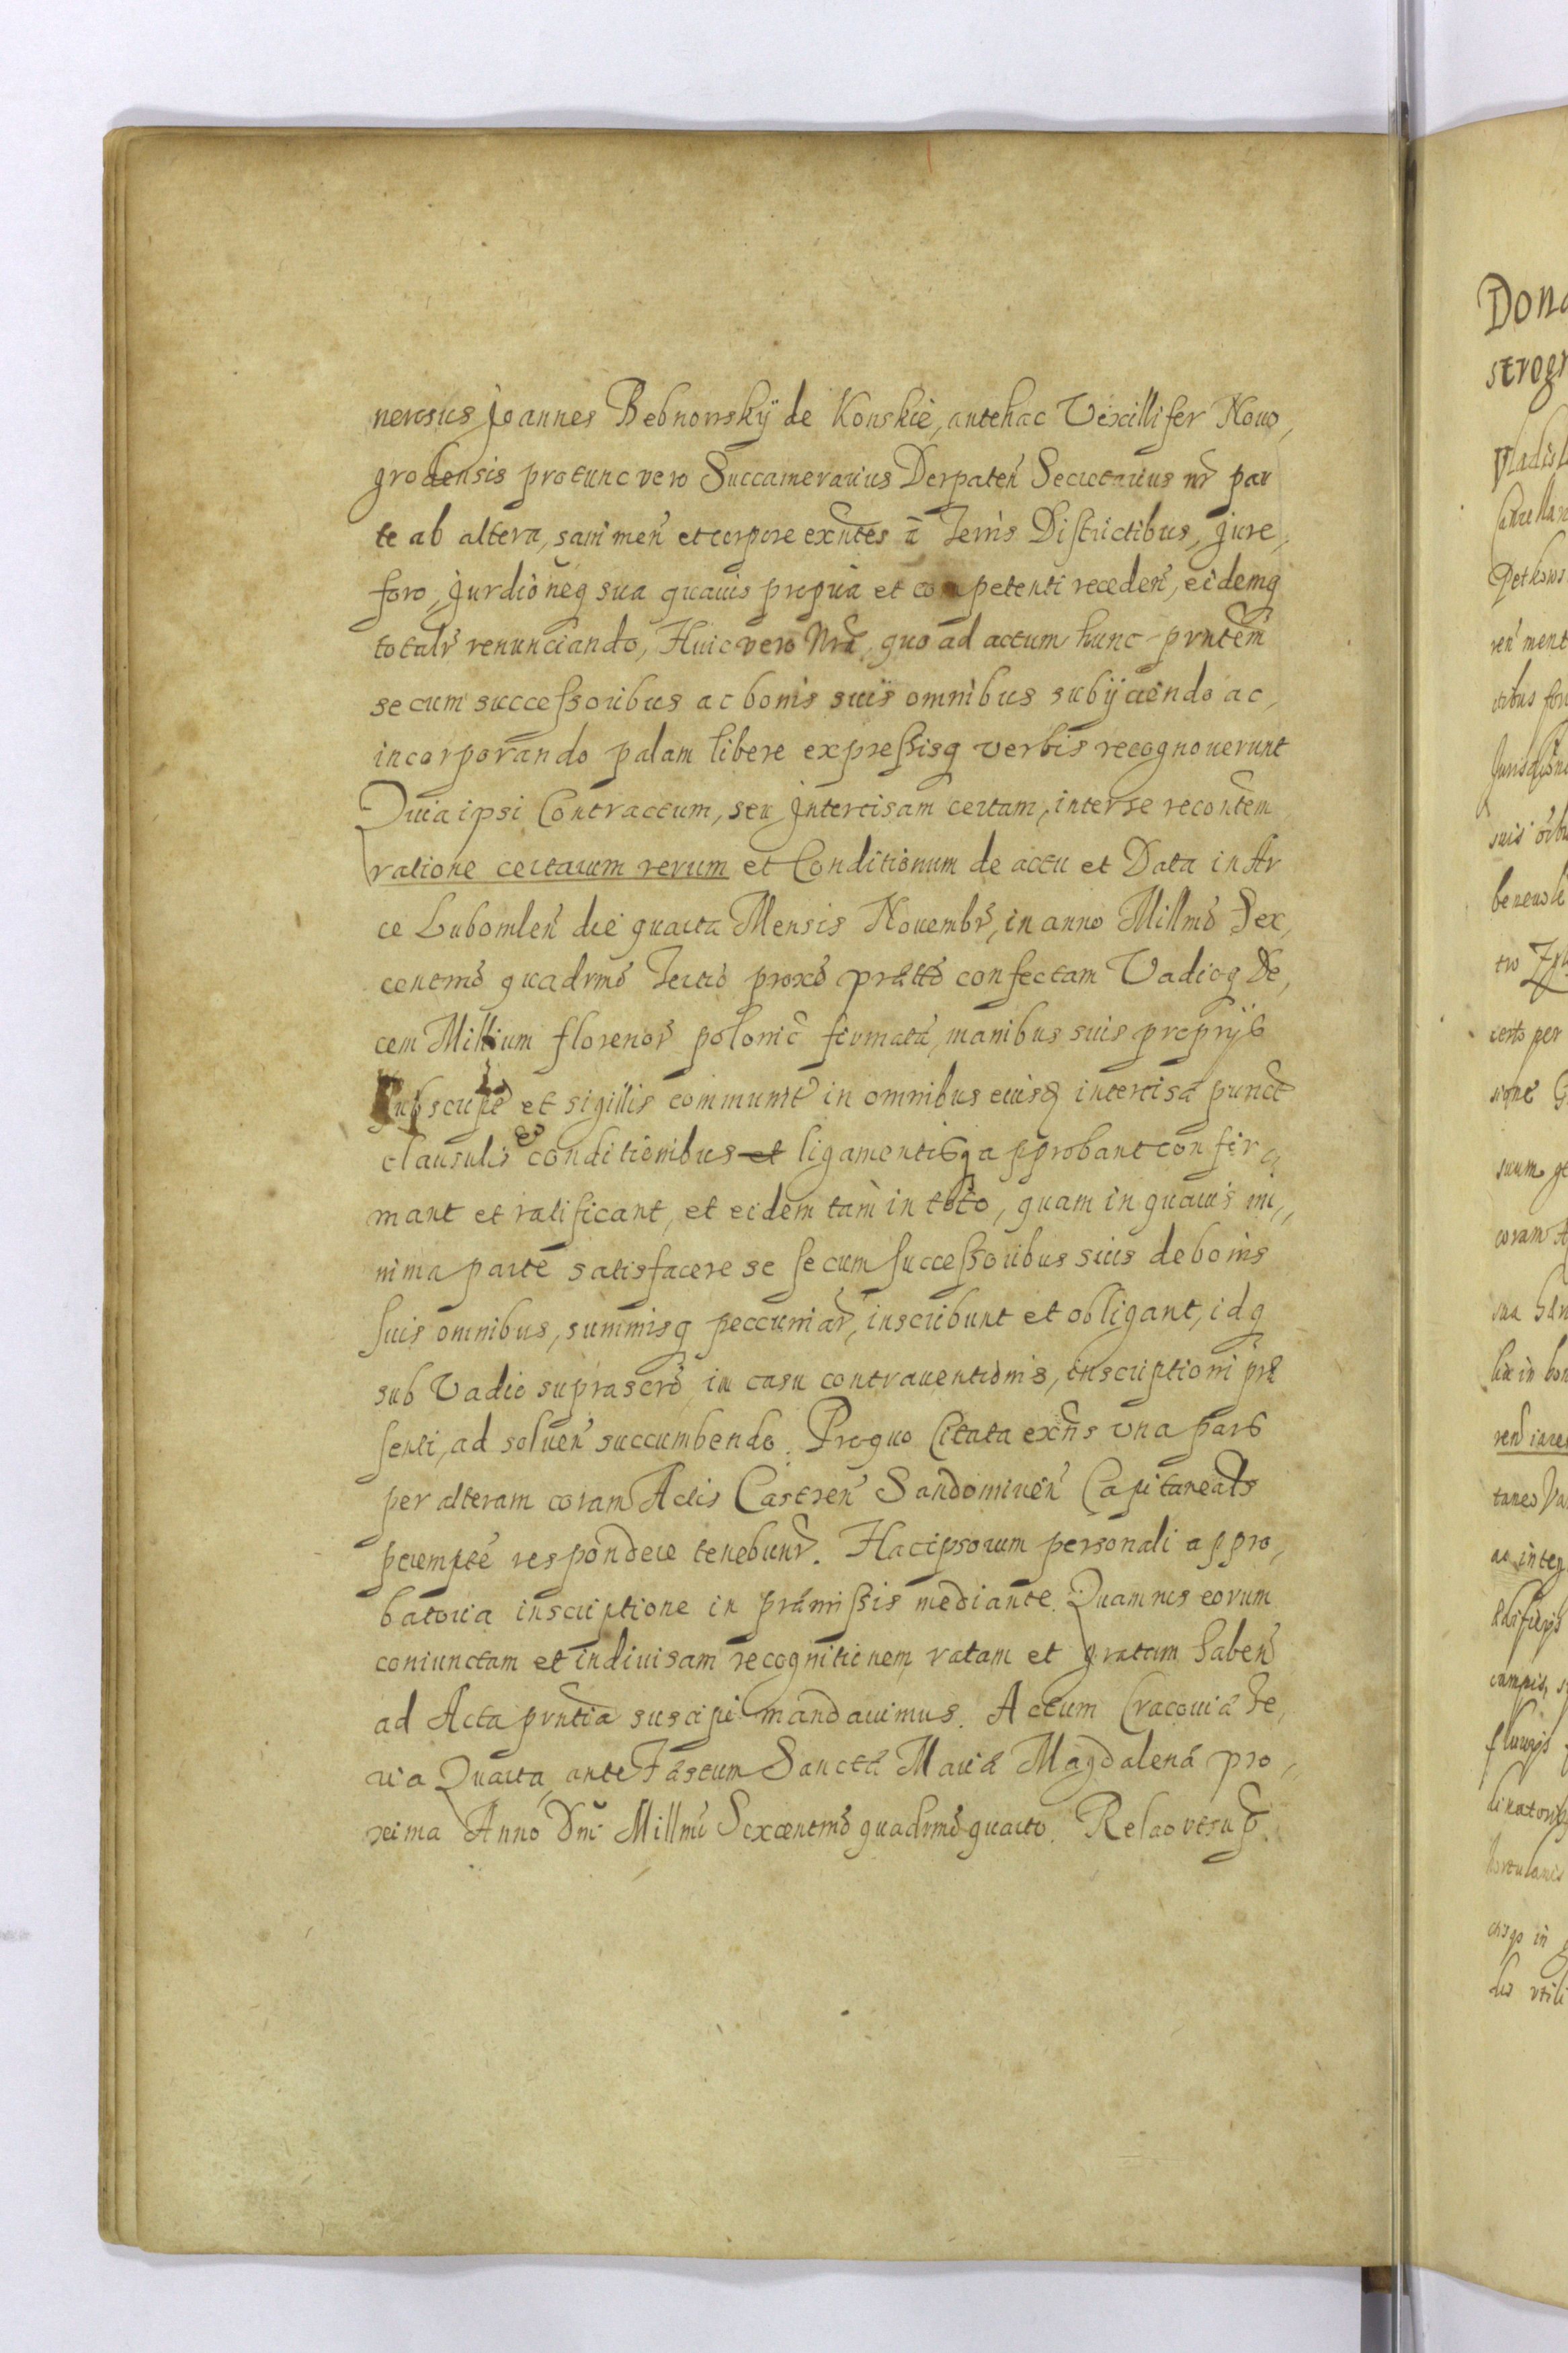 nerosus Joannes Bebnowskÿ de Konskie, antehac Vexillifer Nouo,
grodensis protunc vero Succamerarius Derpateñ Secretarius nr̃ par
te ab altera, sani meñ et corpore exñtes ã Terris Districtibus, Jure,
foro, Jurdioneq sua quauis propria et competenti recedeñ, eidemq
totalr̃ renunciando, Huic vero Nrã, quo ad actum hunc prñtem̃
se cum successoribus ac bonis suis omnibus subÿciendo ac,
incorporando palam libere expressisq verbis recognouerunt
Quia ipsi Contractum, seu Intercisam certam, inter se recoñtem
ratione certarum rerum et Conditionum de actu et Data in Ar
ce Lubomleñ die quarta Mensis Nouembr̃, in anno Millmõ Sex,
centmõ quadrmõ Tertio proxõ prættõ confectam Vadioq De,
cem Millium florenor̃ polonic̃ firmatã, manibus suis proprÿs
Subscripť et sigillis communiť in omnibus eiusd intercisæ punct
clausulis & conditionibus et ligamentisq approbant confir
mant et ratificant, et eidem tam in toto, quam in quauis mi,,
nima parte satisfacere se se cum successoribus suis de bonis
suis omnibus, summisq peccuniar̃, inscribunt et obligant, idq
sub Vadio suprascrõ, in casu contrauentionis, inscriptioni præ
senti, ad solueñ succumbendo. Pro quo Citata exñs vna pars
per alteram coram Actis Castreñ Sandomirieñ Capitanealr
peremptè respondere tenebunr̃. Hac ipsorum personali appro,
batoria inscriptione in præmissis mediante. Quam nos eorum
coniunctam et indiuisam recognitionem ratam et gratam habeñ
ad Acta prñtia suscipi mandauimus. Actum Cracouiæ Fe,
ria Quarta ante Festum Sanctæ Mariæ Magdalenæ pro,,
xima Anno Dni Millmõ Sexcentmõ quadrmõ quarto. Relao vt sup.
Dona
strogr
Vladisl
Cancellar
Petkows